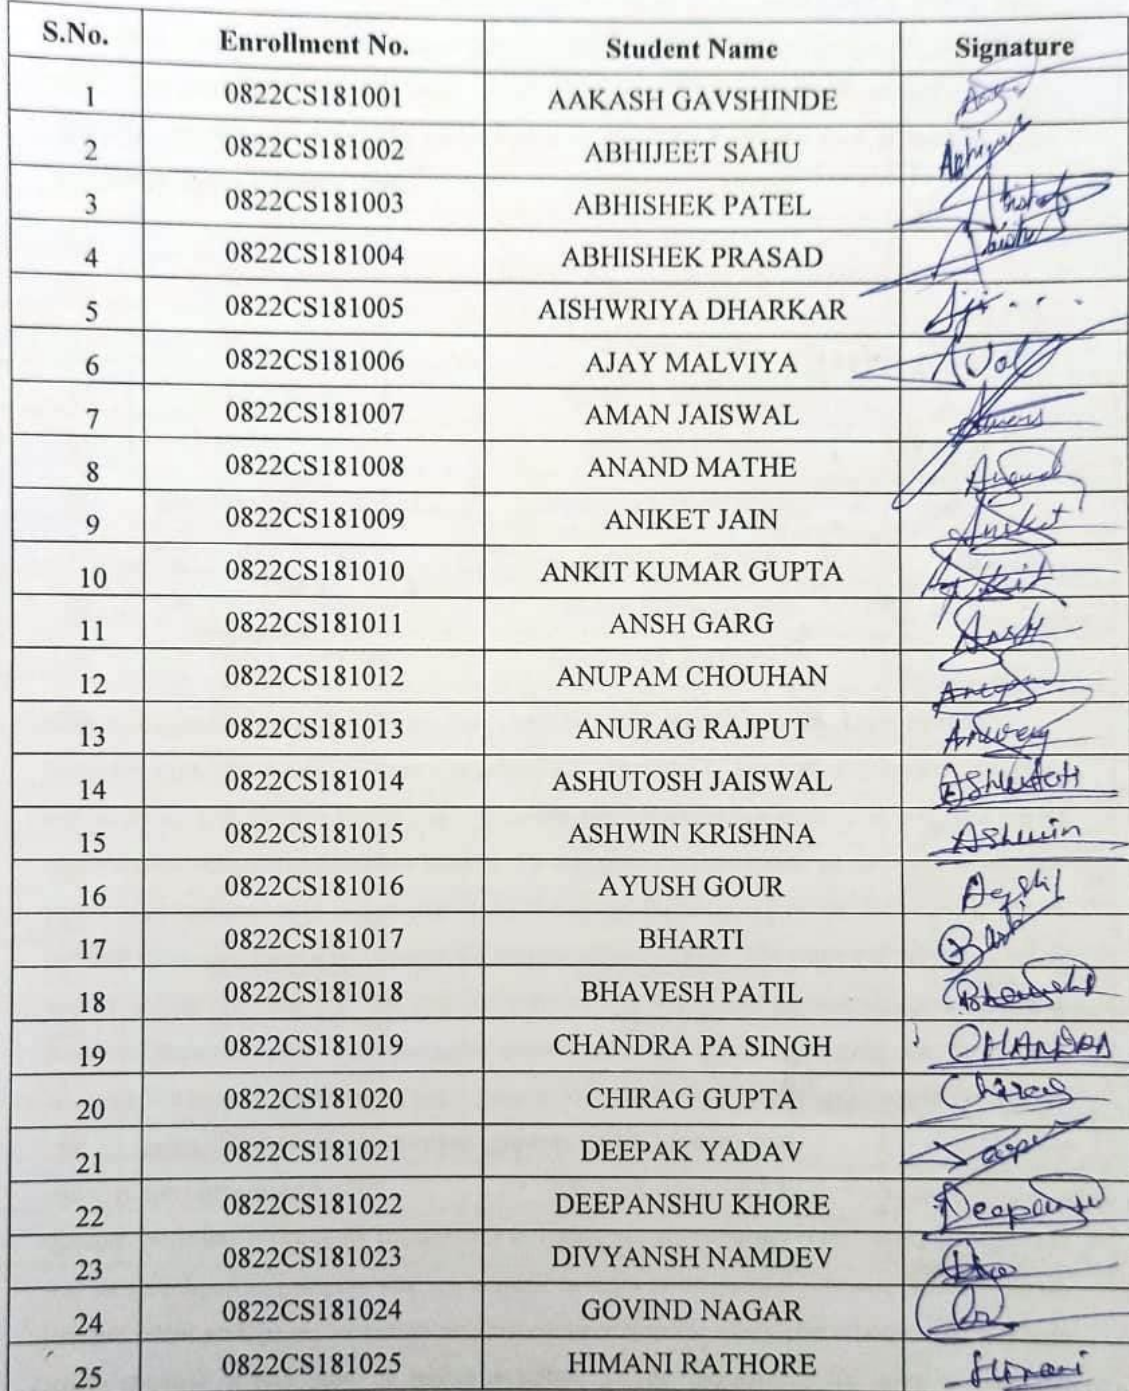 S.No. Enrollment No. Student Name Signature
1 0822CS181001 AAKASH GAVSHINDE
2 0822CS181002 ABHIJEET SAHU
3 0822CS181003 ABHISHEK PATEL
4 0822CS181004 ABHISHEK PRASAD
5 0822CS181005 AISHWRIYA DHARKAR
6 0822CS181006 AJAY MALVIYA
7 0822CS181007 AMAN JAISWAL
8 0822CS181008 ANAND MATHE Anand
9 0822CS181009 ANIKET JAIN Aniket
10 0822CS181010 ANKIT KUMAR GUPTA Ankit
11 0822CS181011 ANSH GARG Ansh
12 0822CS181012 ANUPAM CHOUHAN
13 0822CS181013 ANURAG RAJPUT Anurag
14 0822CS181014 ASHUTOSH JAISWAL
15 0822CS181015 ASHWIN KRISHNA Ashwin
16 0822CS181016 AYUSH GOUR
17 0822CS181017 BHARTI
18 0822CS181018 BHAVESH PATIL
19 0822CS181019 CHANDRA PA SINGH CHANDRA
20 0822CS181020 CHIRAG GUPTA Chirag
21 0822CS181021 DEEPAK YADAV
22 0822CS181022 DEEPANSHU KHORE
23 0822CS181023 DIVYANSH NAMDEV
24 0822CS181024 GOVIND NAGAR
25 0822CS181025 HIMANI RATHORE Himani